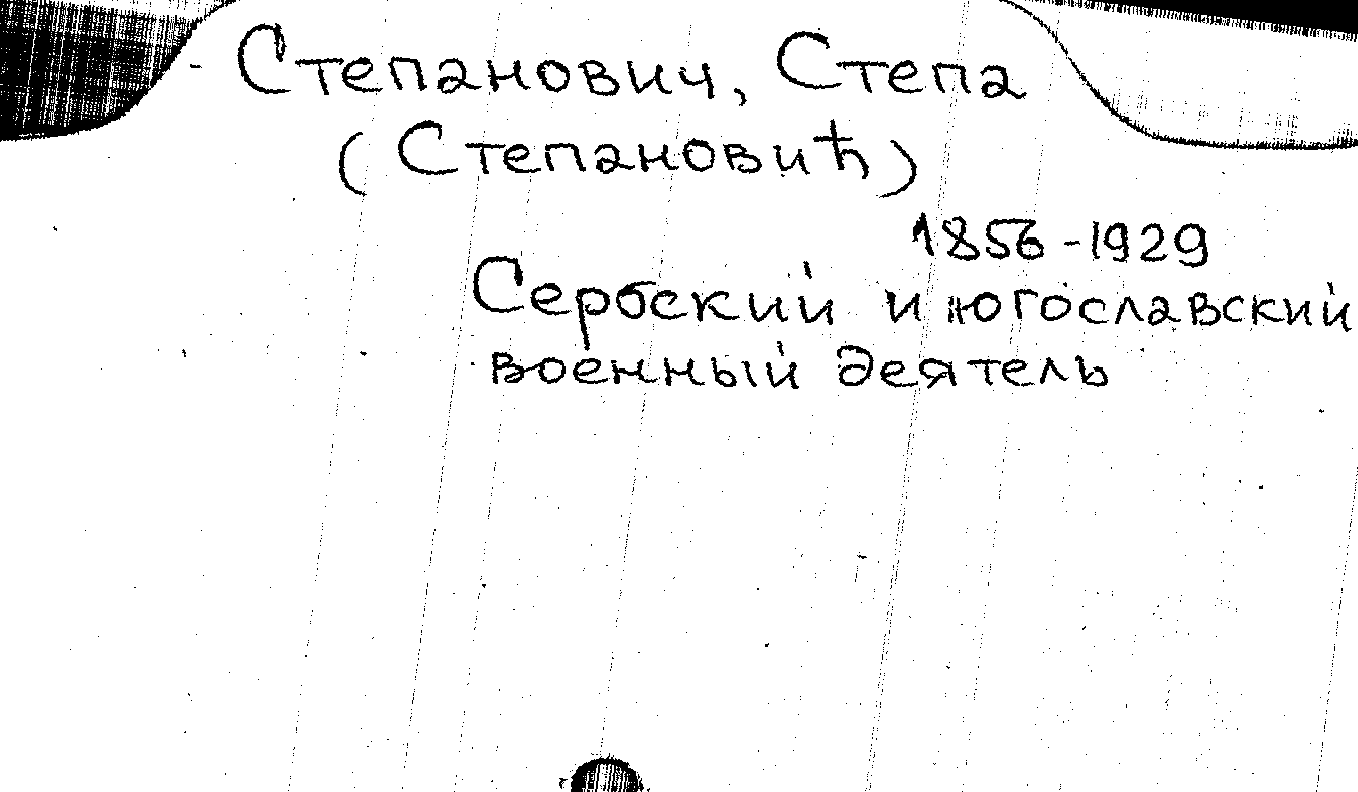 Степанович, Степа
(Степановић)
1856-1929
Сербский и югославский
военный деятель